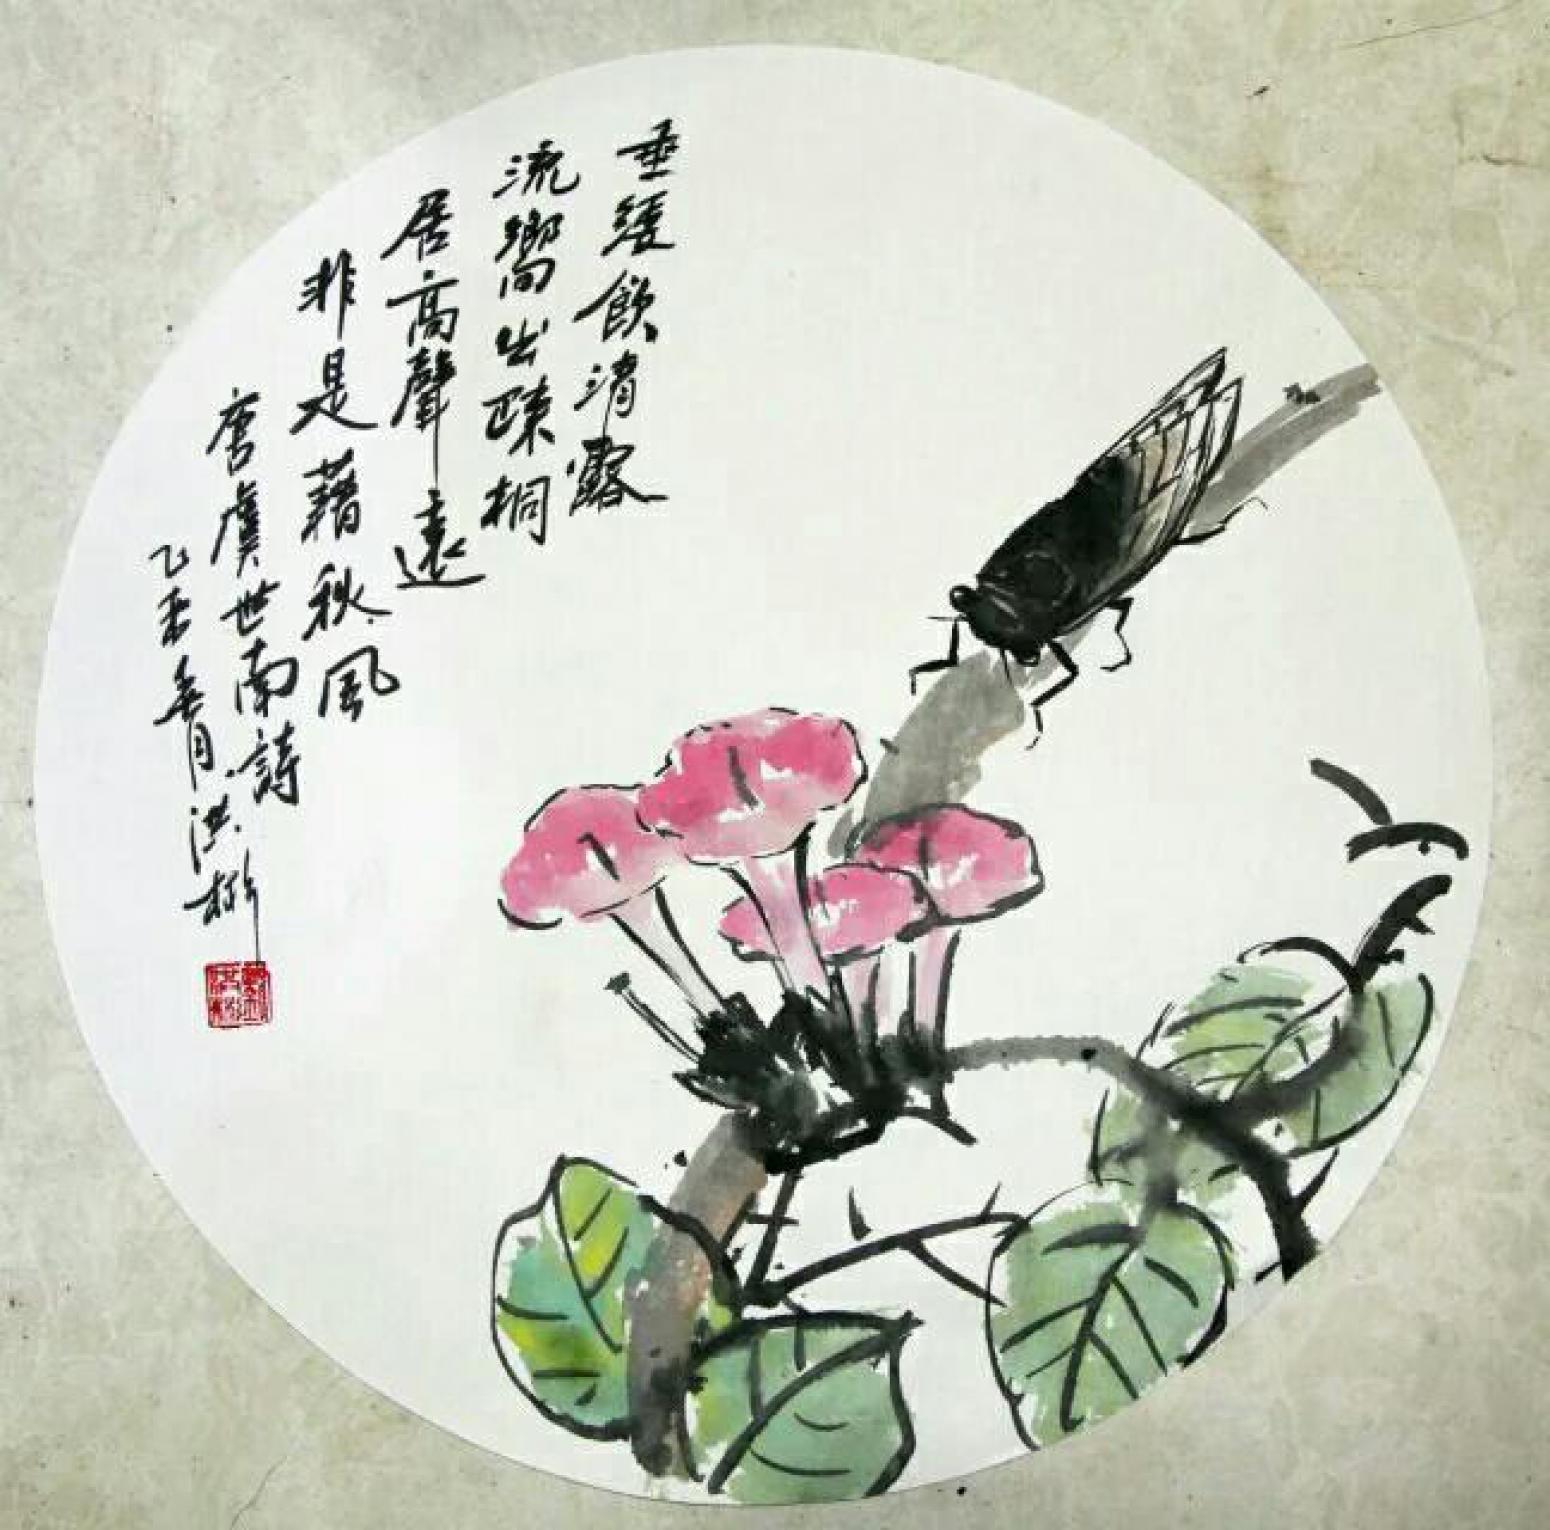 垂緌飲清露
流響出疎桐
居高聲遠
非是藉秋風
唐虞世南詩
乙未春月洪彬